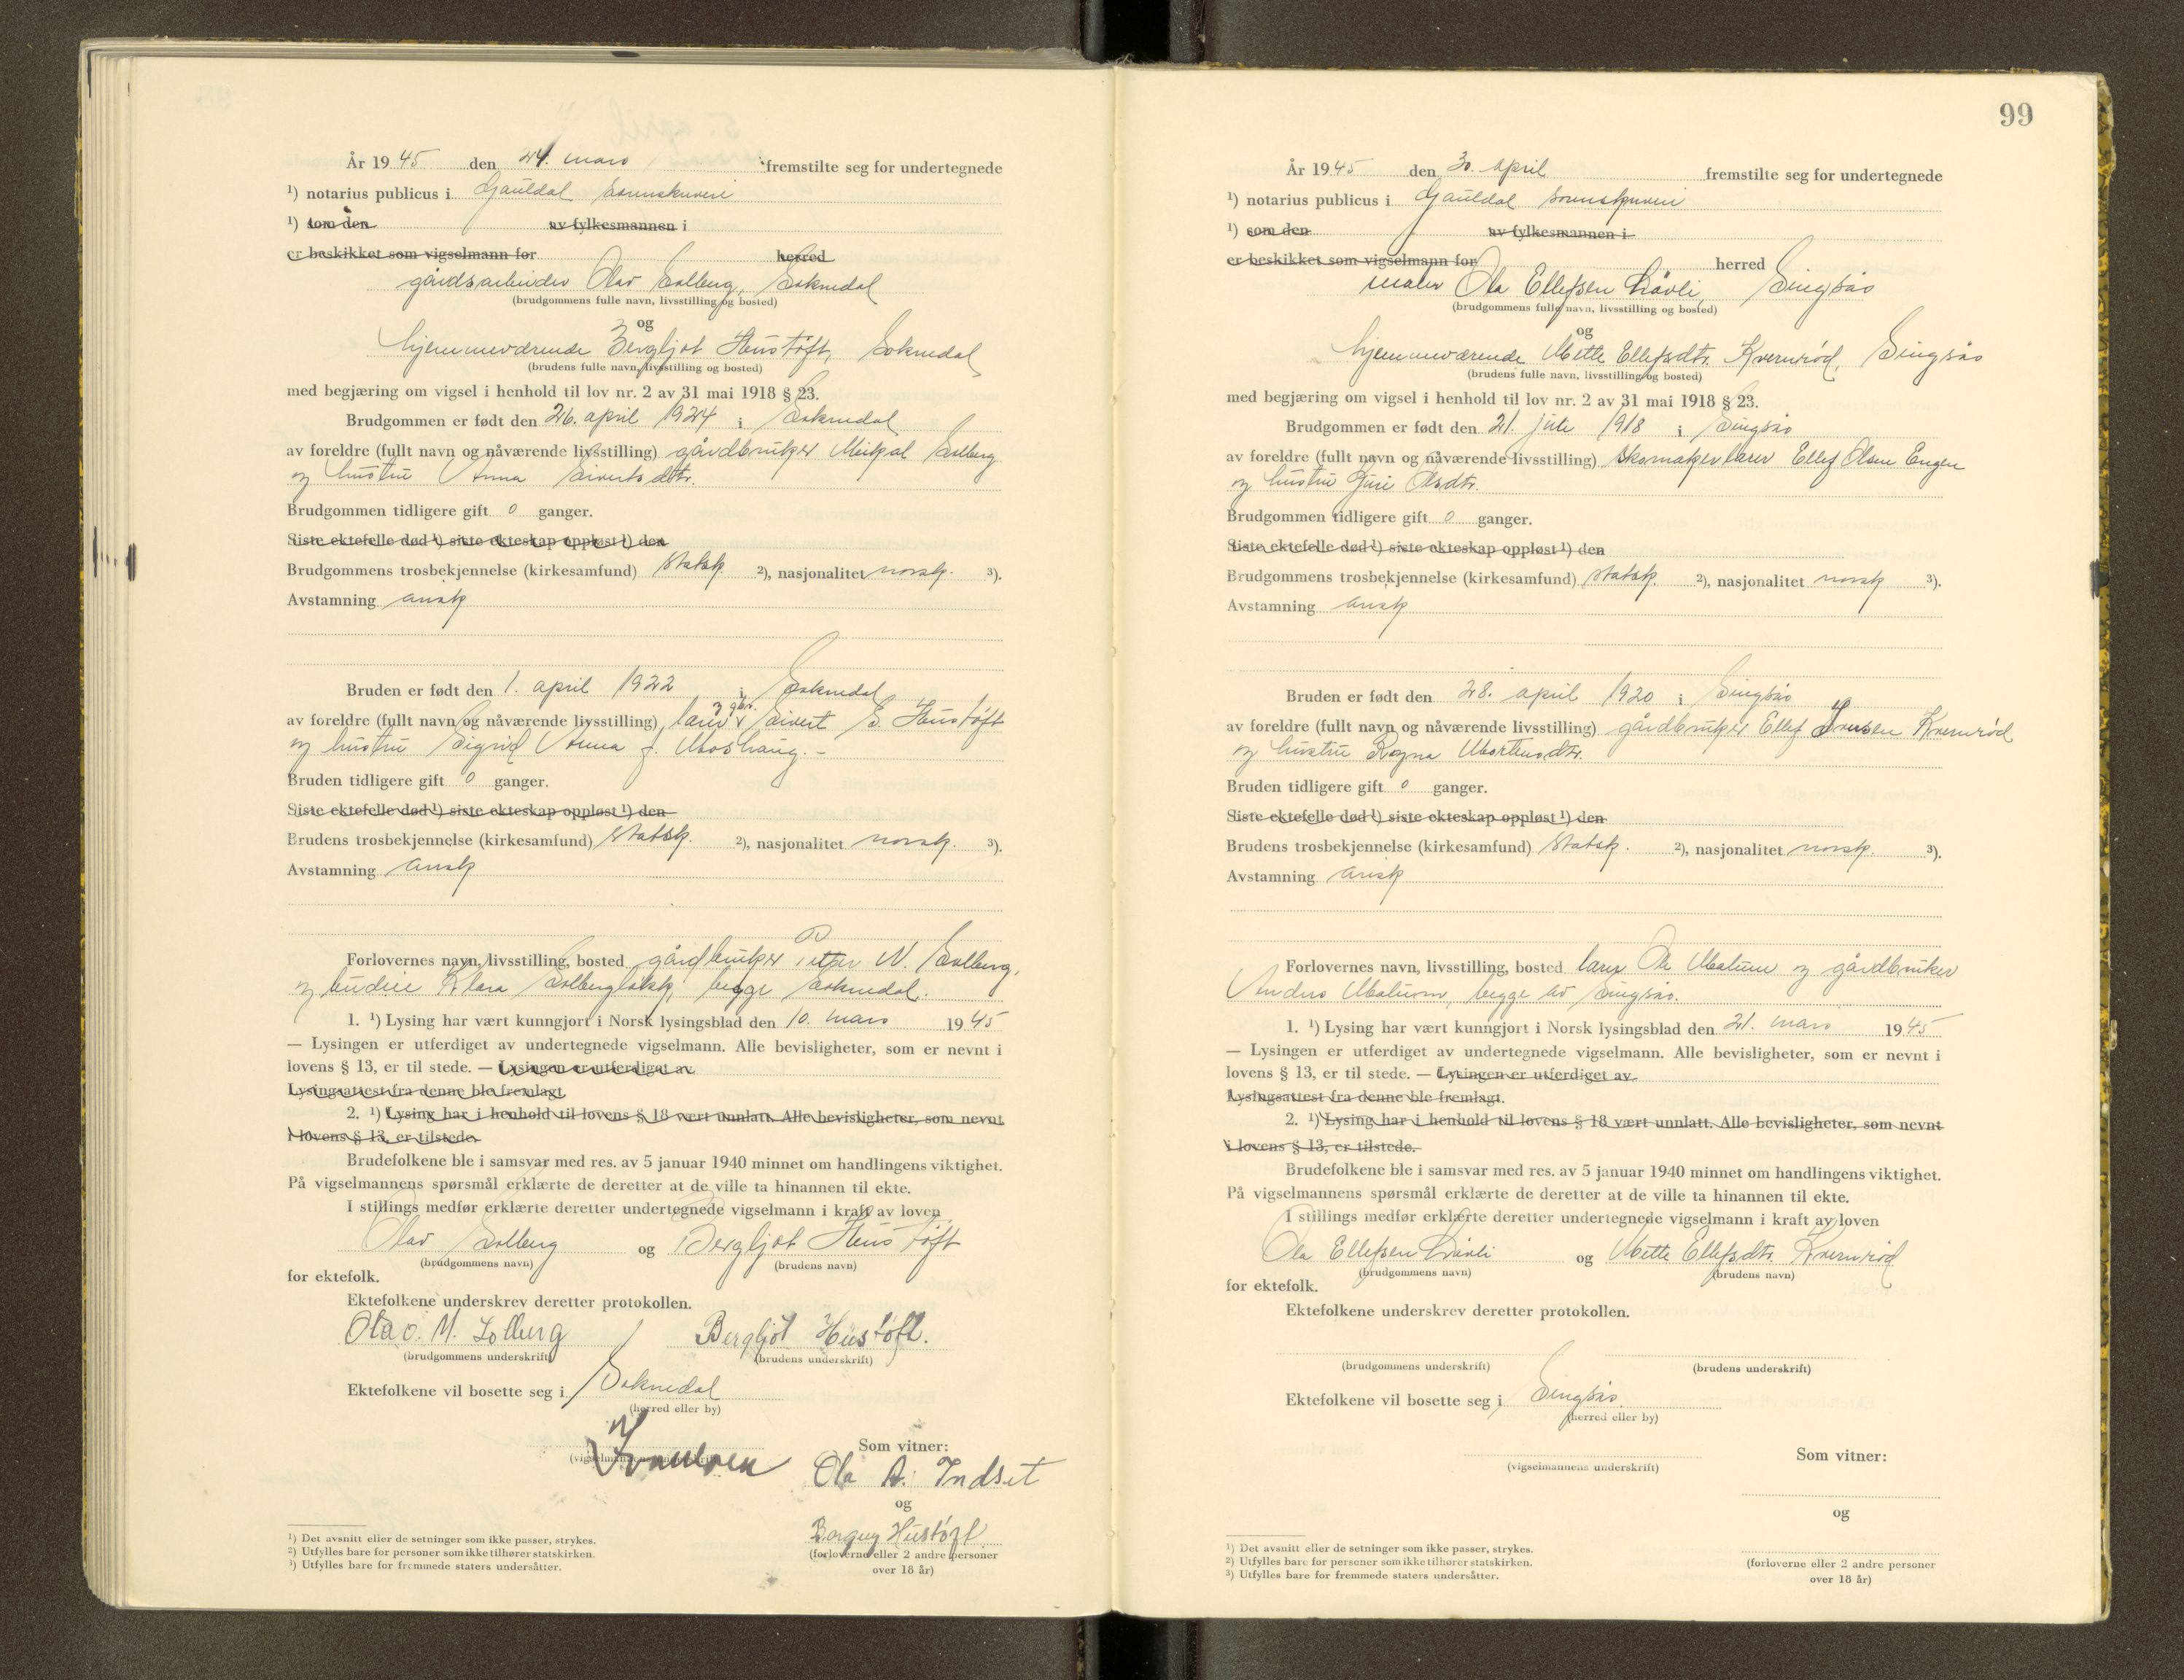 År 1945 den 24. mars fremstilte seg for undertegnede
¹) notarius publicus i Gauldal sorenskriveri
¹) som den av fylkesmannen i
er beskikket som vigselmann for herred
gårdsarbeider Olav Solberg, Soknedal
(brudgommens fulle navn, livsstilling og bosted)
og
hjemmeværende Bergljot Hustøft, Soknedal
(brudens fulle navn, livsstilling og bosted)
med begjæring om vigsel i henhold til lov nr. 2 av 31 mai 1918 § 23.
Brudgommen er født den 26. april 1924 i Soknedal
av foreldre (fullt navn og nåværende livsstilling) gårdbruker Mikal Solberg
og hustru Anna Sivertsdtr.
Brudgommen tidligere gift 0 ganger.
Siste ektefelle død ¹) siste ekteskap oppløst ¹) den
Brudgommens trosbekjennelse (kirkesamfund) statsk. ²), nasjonalitet norsk. ³).
Avstamning arisk
Bruden er født den 1. april 1922 i Soknedal
av foreldre (fullt navn og nåværende livsstilling) Sivert S. Hustøft
og hustru Sigrid Anna f. Moshaug. -
Bruden tidligere gift 0 ganger.
Siste ektefelle død ¹) siste ekteskap oppløst ¹) den
Brudens trosbekjennelse (kirkesamfund) statsk. ²), nasjonalitet norsk. ³).
Avstamning arisk
Forlovernes navn, livsstilling, bosted gårdbruker Petter N. Solberg,
og budeie Klara Solbergløkk, begge Soknedal.
1. ¹) Lysing har vært kunngjort i Norsk lysingsblad den 10. mars 1945
— Lysingen er utferdiget av undertegnede vigselmann. Alle bevisligheter, som er nevnt i
lovens § 13, er til stede. — Lysingen er utferdiget av
Lysingsattest fra denne ble fremlagt.
2. ¹) Lysing har i henhold til lovens § 18 vært unnlatt. Alle bevisligheter, som nevnt
i lovens § 13, er tilstede.
Brudefolkene ble i samsvar med res. av 5 januar 1940 minnet om handlingens viktighet.
På vigselmannens spørsmål erklærte de deretter at de ville ta hinannen til ekte.
I stillings medfør erklærte deretter undertegnede vigselmann i kraft av loven
Olav Solberg og Bergljot Hustøft
(brudgommens navn) (brudens navn)
for ektefolk.
Ektefolkene underskrev deretter protokollen.
Olav M. Solberg Bergljot Hustøft.
(brudgommens underskrift) (brudens underskrift)
Ektefolkene vil bosette seg i Soknedal
(herred eller by)
(vigselmannens underskrift)
Som vitner:
Ola A. Indset
og
Borguy Hustøft
(forloverne eller 2 andre personer
over 18 år)
¹) Det avsnitt eller de setninger som ikke passer, strykes.
²) Utfylles bare for personer som ikke tilhører statskirken.
³) Utfylles bare for fremmede staters undersåtter.
99
År 1945 den 30. april fremstilte seg for undertegnede
¹) notarius publicus i Gauldal sorenskriveri
¹) som den av fylkesmannen i
er beskikket som vigselmann for herred
maler Ola Ellefsen Løvli, Singsås
(brudgommens fulle navn, livsstilling og bosted)
og
hjemmeværende Mette Ellefsdtr. Kvernrød, Singsås
(brudens fulle navn, livsstilling og bosted)
med begjæring om vigsel i henhold til lov nr. 2 av 31 mai 1918 § 23.
Brudgommen er født den 21. juli 1918 i Singsås
av foreldre (fullt navn og nåværende livsstilling) skomaker Ellef Olsen Engen
og hustru Guri Olsdtr.
Brudgommen tidligere gift 0 ganger.
Siste ektefelle død ¹) siste ekteskap oppløst ¹) den
Brudgommens trosbekjennelse (kirkesamfund) statsk. ²), nasjonalitet norsk ³).
Avstamning arisk
Bruden er født den 28. april 1920 i Singsås
av foreldre (fullt navn og nåværende livsstilling) gårdbruker Ellef Iversen Kvernrød
og hustru Ragna Mortensdtr.
Bruden tidligere gift 0 ganger.
Siste ektefelle død ¹) siste ekteskap oppløst ¹) den
Brudens trosbekjennelse (kirkesamfund) statsk. ²), nasjonalitet norsk. ³).
Avstamning arisk
Forlovernes navn, livsstilling, bosted Molum og gårdbruker
Anders Moluom, begge av Singsås.
1. ¹) Lysing har vært kunngjort i Norsk lysingsblad den 21. mars 1945
— Lysingen er utferdiget av undertegnede vigselmann. Alle bevisligheter, som er nevnt i
lovens § 13, er til stede. — Lysingen er utferdiget av
Lysingsattest fra denne ble fremlagt.
2. ¹) Lysing har i henhold til lovens § 18 vært unnlatt. Alle bevisligheter, som nevnt
i lovens § 13, er tilstede.
Brudefolkene ble i samsvar med res. av 5 januar 1940 minnet om handlingens viktighet.
På vigselmannens spørsmål erklærte de deretter at de ville ta hinannen til ekte.
I stillings medfør erklærte deretter undertegnede vigselmann i kraft av loven
Ola Ellefsen Løvli og Mette Ellefsdtr. Kvernrød
(brudgommens navn) (brudens navn)
for ektefolk.
Ektefolkene underskrev deretter protokollen.
(brudgommens underskrift) (brudens underskrift)
Ektefolkene vil bosette seg i Singsås.
(herred eller by)
(vigselmannens underskrift)
Som vitner:
og
(forloverne eller 2 andre personer
over 18 år)
¹) Det avsnitt eller de setninger som ikke passer, strykes.
²) Utfylles bare for personer som ikke tilhører statskirken.
³) Utfylles bare for fremmede staters undersåtter.